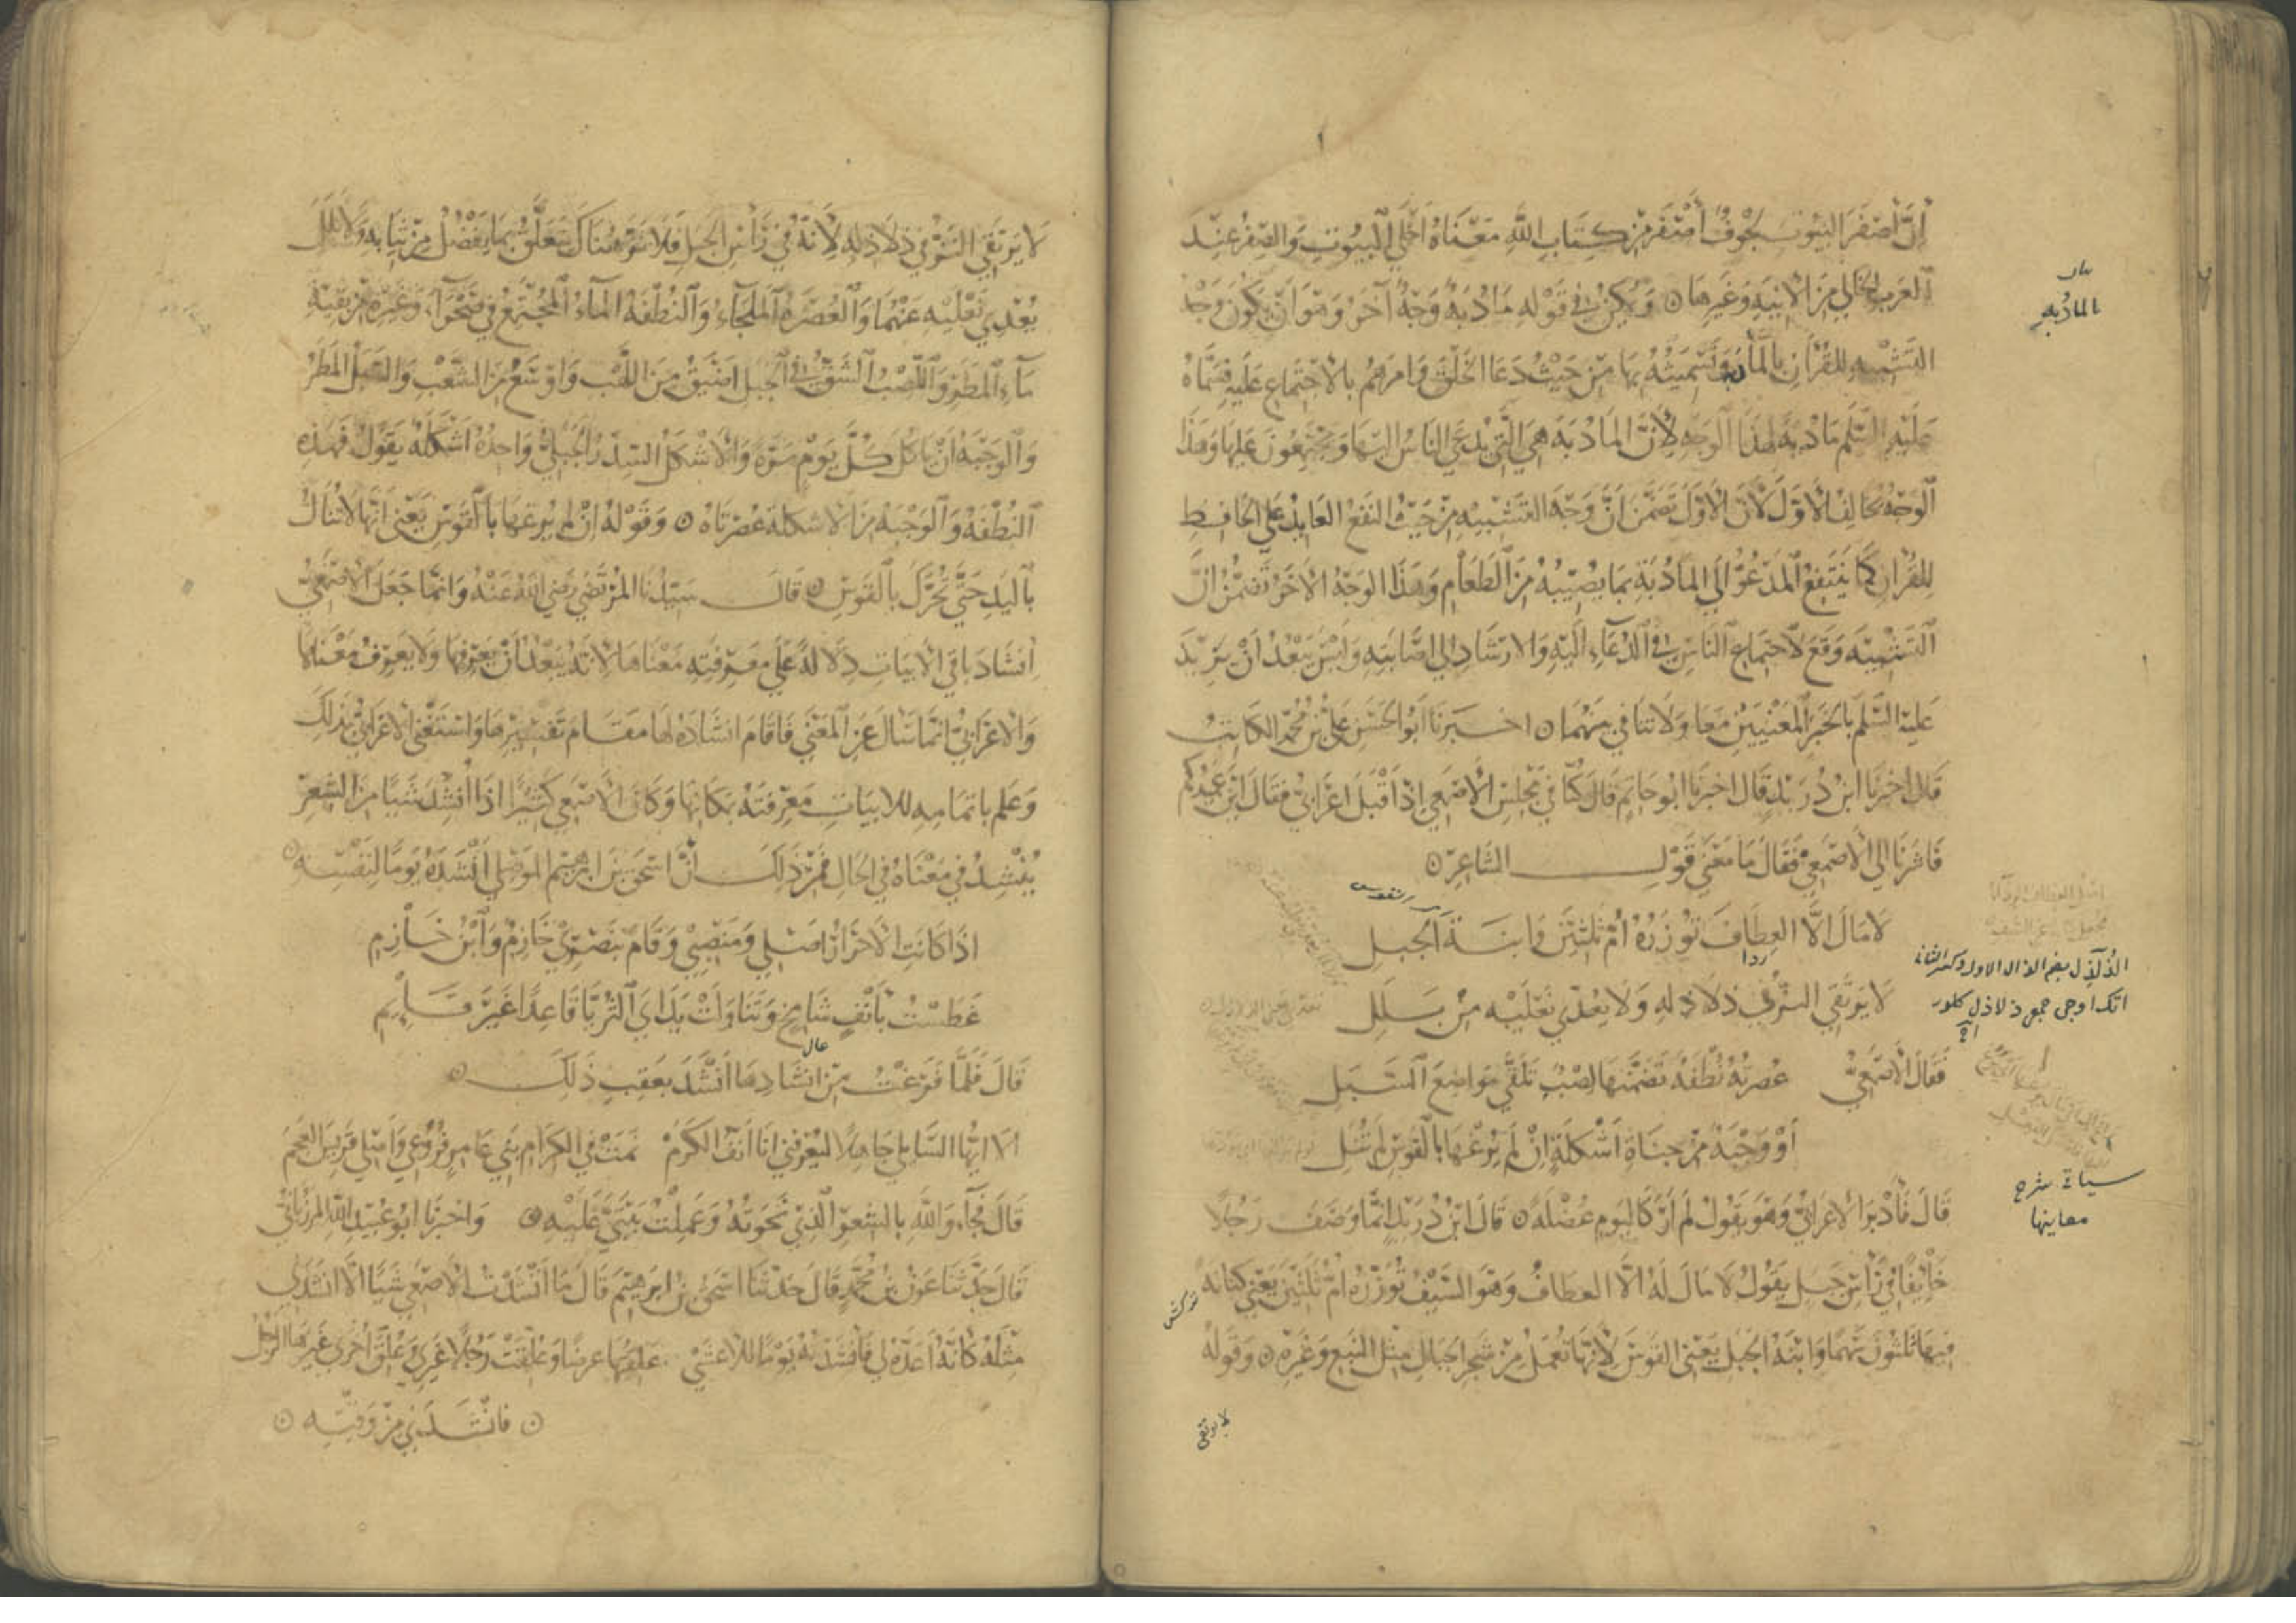 إن أصفر البيوت لجوف أصفر من كتاب الله معناه أخلى البيوت والصفر عند
العرب الخالي من الآنية وغيرها ۞ ويمكن في قوله مأدبة وجه آخر وهو أن يكون وجه
التشبيه للقرآن بالمأدبة وتسميته بها من حيث دعا الخلق وأمرهم بالاجتماع عليه فسماه
عليه السلم مأدبة لهذا الوجه لأن المأدبة هي التي يدعى الناس إليها ويجتمعون عليها وهذا
الوجه يخالف الأول لأن الأول تضمن أن وجه التشبيه من حيث النفع العايد على الحافظ
للقرآن كما ينتفع المدعو إلى المأدبة بما يصيبه من الطعام وهذا الوجه الآخر تضمن أن
التشبيه وقع لاجتماع الناس في الدعاء إليه والارشاد إلى اصابته وليس يبعد أن يريد
عليه السلم بالخبر المعنيين معا ولا تنافي بينهما ۞ اخبرنا أبو الحسن علي بن محمد الكاتب
قال اخبرنا ابن دريد قال اخبرنا ابو حاتم قال كنا في مجلس الأصمعي إذ أقبل اعرابي فقال اين عميدكم
فاشرنا إلى الأصمعي فقال ما معنى قول الشاعر ۞
لا مال الا العطاف توزره أم ثلثين وابنة الجبل
لا يرتقي النز في ذلاذله ولا يعدي نعليه من بلل
فقال الأصمعي عصرته نطفة تضمنها لصب تلقى مواضع السبل
أو وجبة من جناة أشكلة إن لم يرغها بالقوس لم تنل
قال فأدبر الاعرابي وهو يقول لم أر كاليوم عضلة ۞ قال ابن دريد إنما وصف رجلا
خايفا في رأس جبل يقول لا مال له الا العطاف وهو السيف توزره أم ثلثين يعني كنانة
فيها ثلثون سهما وابنة الجبل يعني القوس لأنها تعمل من شجر الجبال مثل النبع وغيره ۞ وقوله
لا يرتقي
بالمأدبة
ردا
الذلذل بضم الذال الاول وكسر الثاني
اتك اوجى جمع ذلاذل كلور
سيأتي شرح
معاينها
لا يرتقي النز في ذلاذله لأنه في رأس الجبل فلا نز هناك يتعلق بما يفضل من ثيابه ولا بلل
يعدي نعليه عنهما والعصرة الملجاء والنطفة الماء المجتمع في صخرة وغيره من بقية
ماء المطر واللصب الشق في الجبل اضيق من اللهب واوسع من الشعب والسبل المطر
والوجبة أن يأكل كل يوم مرة والأشكل السدر الجبلي واحدة اشكلة يقول فهذه
النطفة والوجبة من الاشكلة عصرتاه ۞ وقوله ان لم يرغها بالقوس يعني أنها لا تنال
باليد حتى تحرك بالقوس ۞ قال سيدنا المرتضى رضي الله عنه وانما جعل الأصمعي
إنشاد باقي الابيات دلالة على معرفته معناها لأنه يبعد أن يعرفها ولا يعرف معناها
والاعرابي انما سأل عن المعنى فاقام انشاده لها مقام تفسيرها واستغنى الاعرابي بذلك
وعلم باتمامه للابيات معرفته بمكانها وكان الأصمعي كثيرا اذا أنشد شيا من الشعر
ينشد في معناه في الحال فمن ذلك أن اسحق بن ابرهيم الموصلي أنشده يوما لنفسه ۞
اذا كانت الاحرار اصلي ومنصبي وقام بنصري خازم وابن خازم
عطست بأنف شامخ وتناولت يداي الثريا قاعدا غير قايم
عال
قال فلما فرغت من انشادها أنشد بعقب ذلك ۞
ألا ايها السايلي جاهلا ليعرفني انا أنف الكرم نمت في الكرام بني عامر فروعي وأصلي قريش العجم
قال فجاء والله بالشعر الذي نحوته وعملت بيتي عليه ۞ واخبرنا ابو عبيد الله المرزباني
قال حدثنا عون بن محمد قال حدثنا اسحق بن ابرهيم قال ما أنشدت الأصمعي شيا الا انشدني
مثله كأنه أعده لي فأنشدته يوما للاعشى علقتها عرضا وعلقت رجلا غيري وعلق أخرى غيرها الرجل
۞ فانشدني من وقته ۞